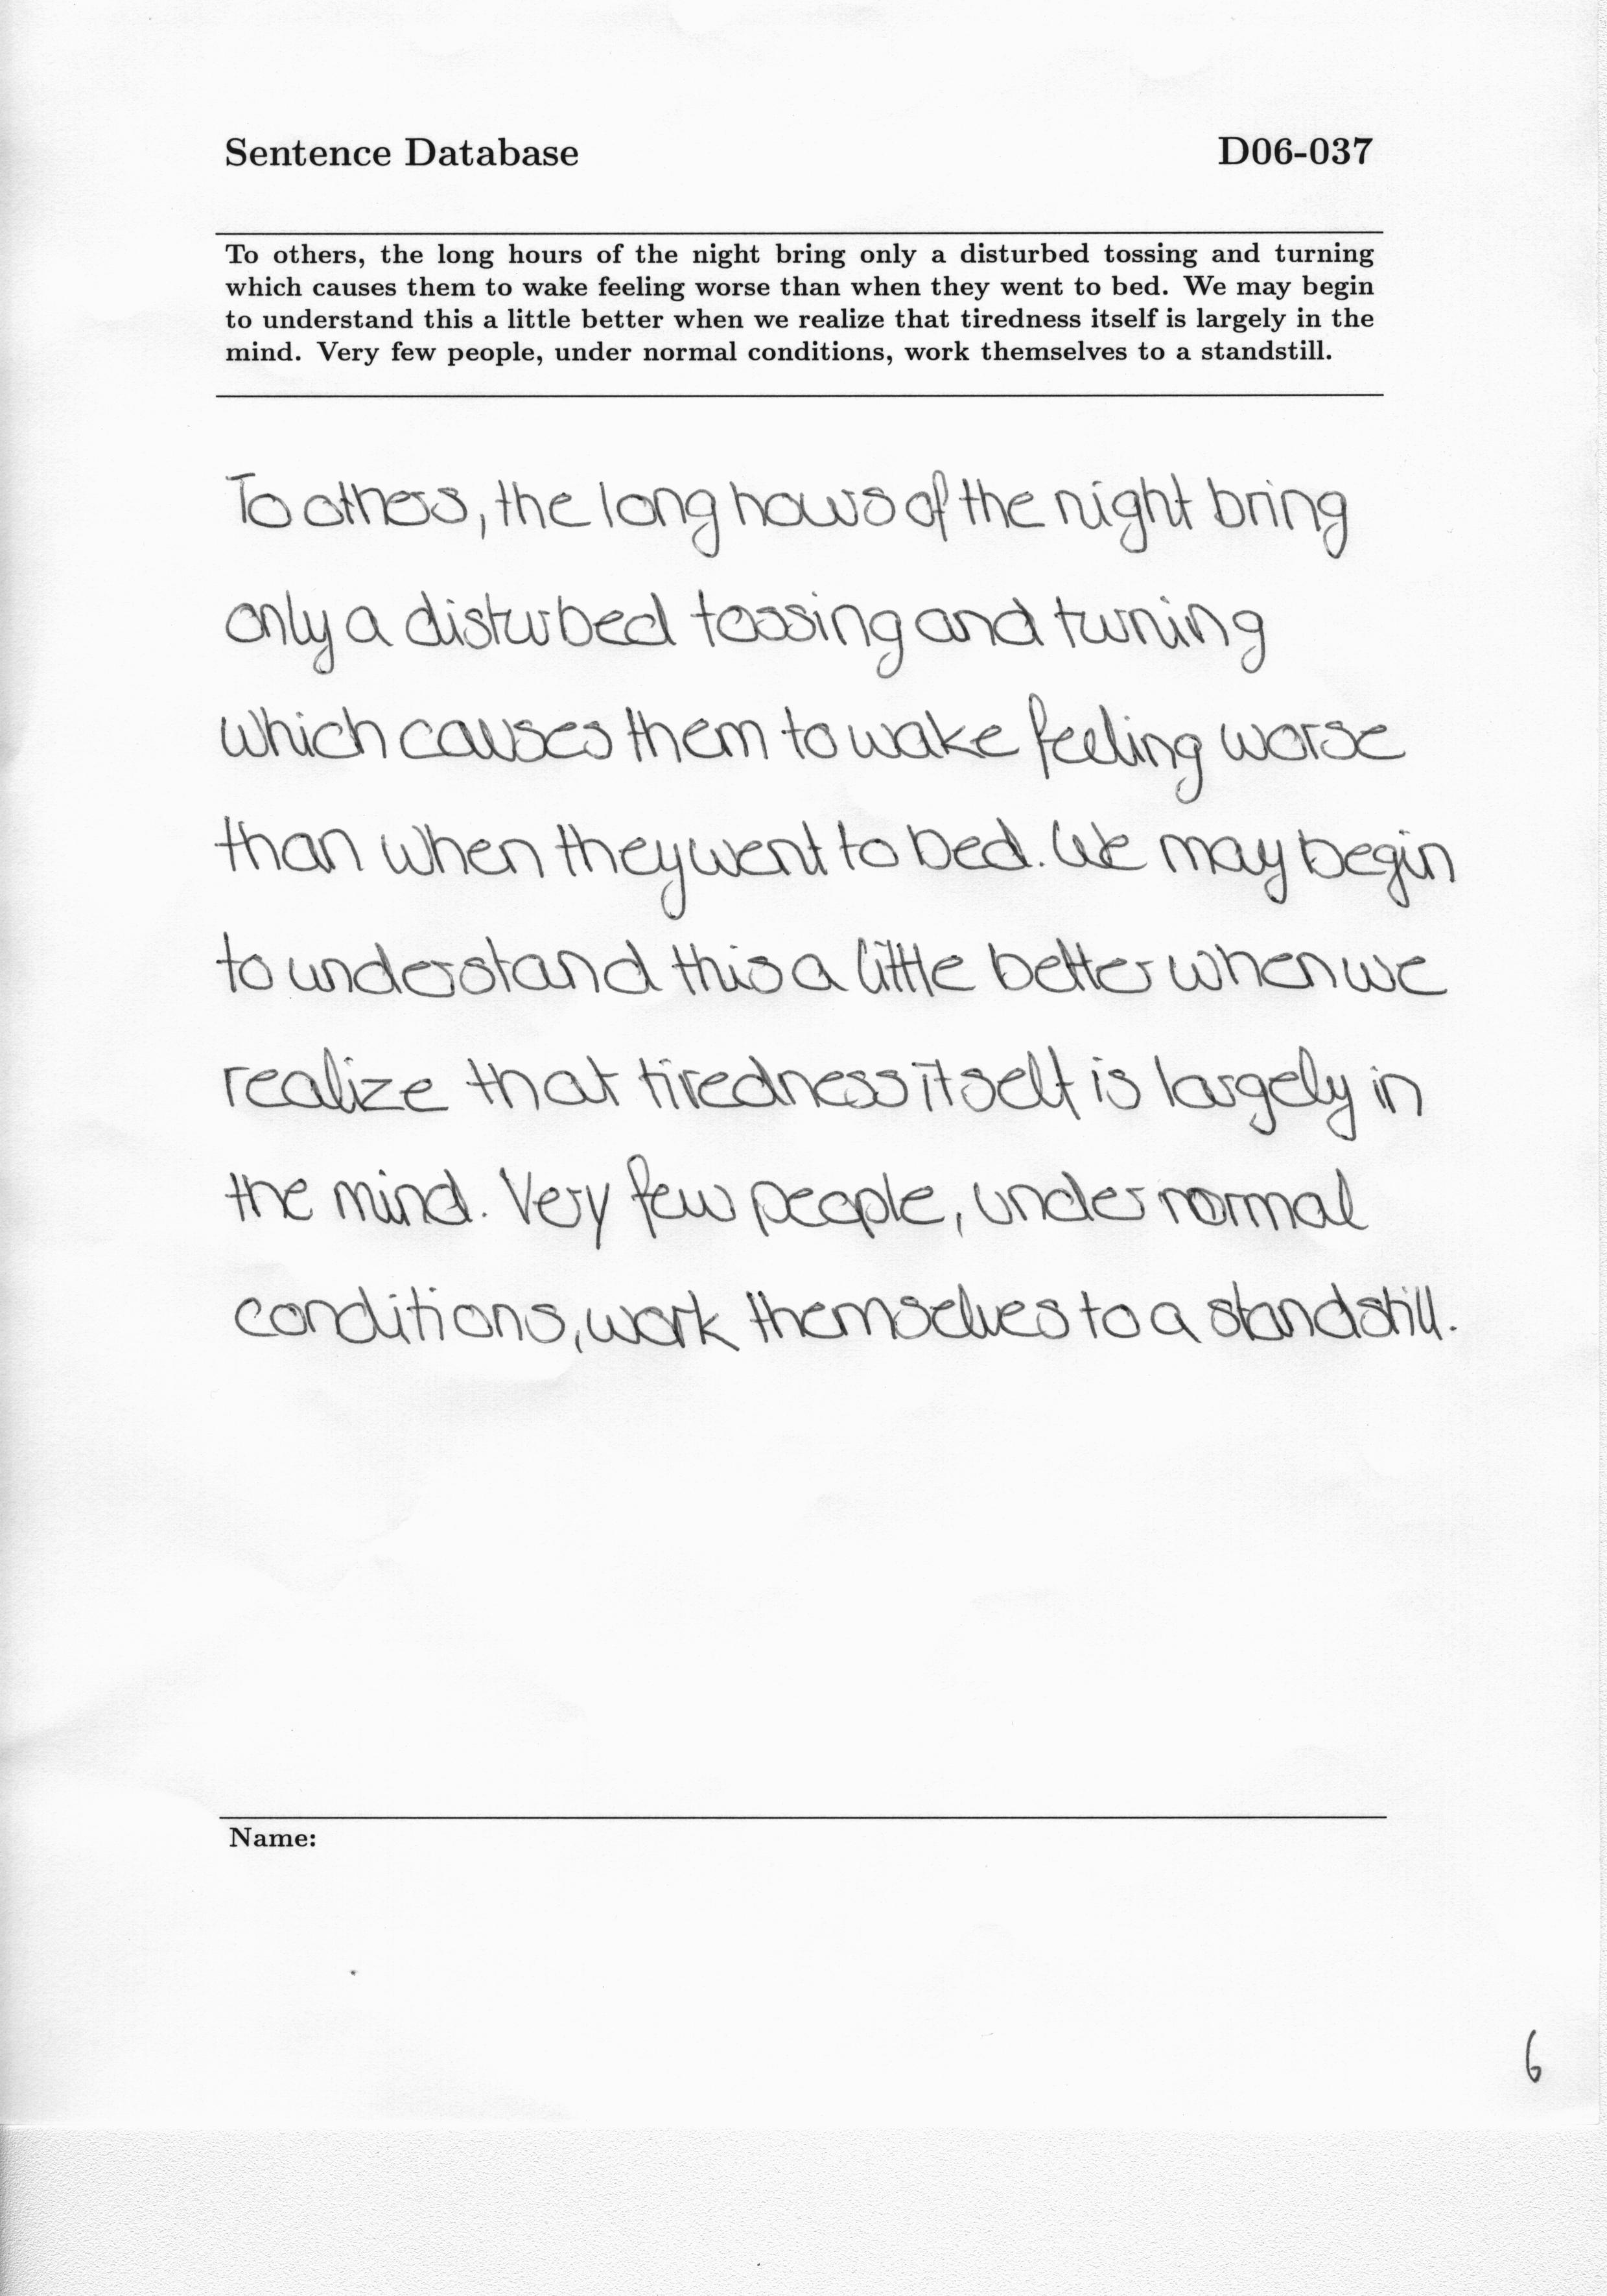 Sentence Database D06-037
To others, the long hours of the night bring only a disturbed tossing and turning
which causes them to wake feeling worse than when they went to bed. We may begin
to understand this a little better when we realize that tiredness itself is largely in the
mind. Very few people, under normal conditions, work themselves to a standstill.
To others, the long hours of the night bring
only a disturbed tossing and turning
which causes them to wake feeling worse
than when they went to bed. We may begin
to understand this a little better when we
realize that tiredness itself is largely in
the mind. Very few people, under normal
conditions, work themselves to a standstill.
Name:
6